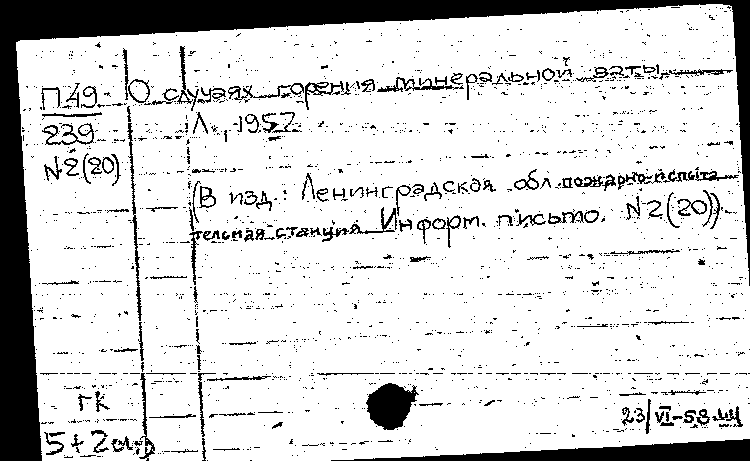 П49 О случаях горения минеральной ваты
239 Л., 1957
N2(20)
(В изд.: Ленинградская обл. пожарно-испыта
тельная станция. Информ. письмо. N2(20)).
гк
23/VI-58
5+2